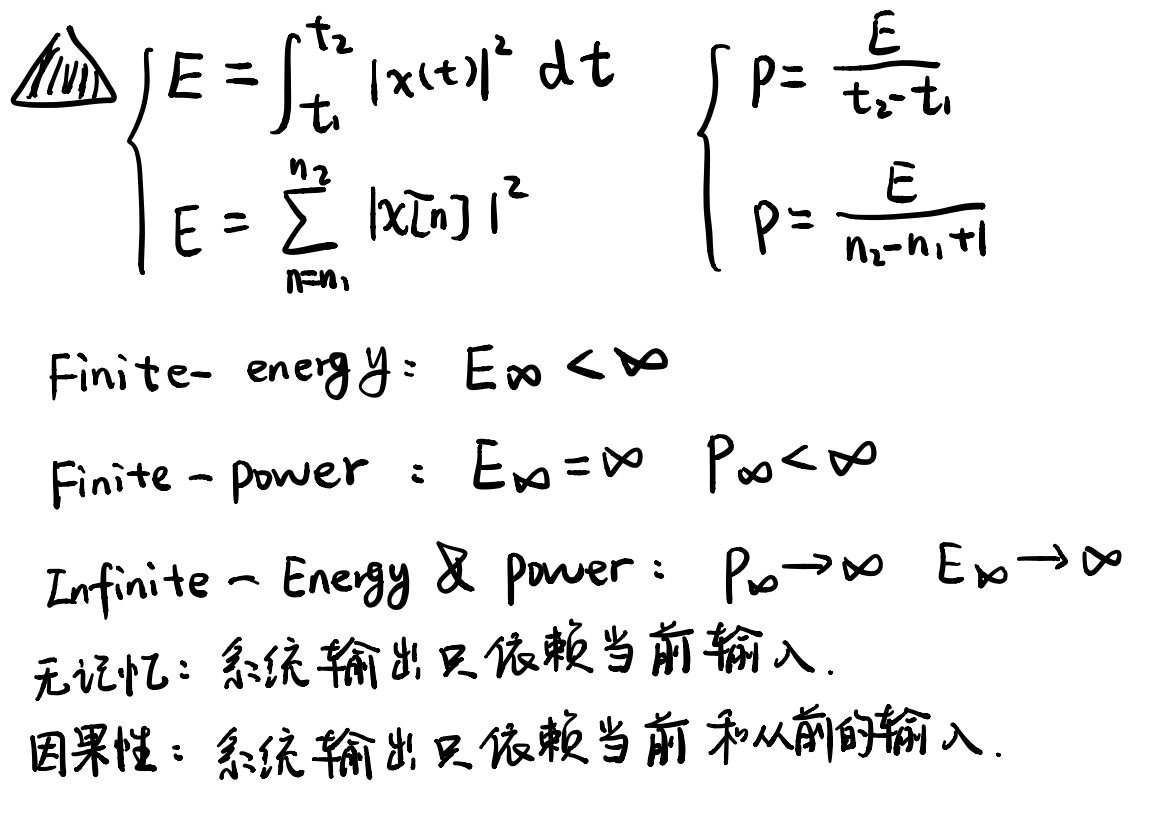 E = ∫_{t₁}^{t₂} |x(t)|² dt    P = E/(t₂-t₁)
E = ∑_{n=n₁}^{n₂} |x[n]|²    P = E/(n₂-n₁+1)
Finite- energy: E∞ < ∞
Finite - power : E∞ = ∞  P∞ < ∞
Infinite - Energy & power: P∞ → ∞  E∞ → ∞
无记忆: 系统输出只依赖当前输入.
因果性: 系统输出只依赖当前和从前的输入.